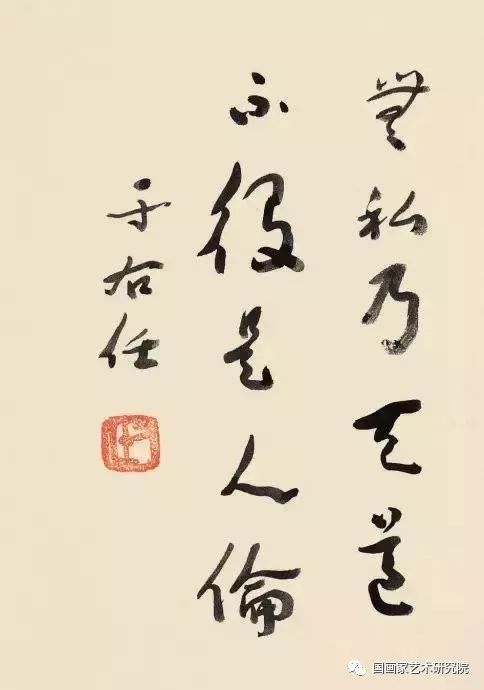 無私乃天道
不役是人倫
于右任
国画家艺术研究院